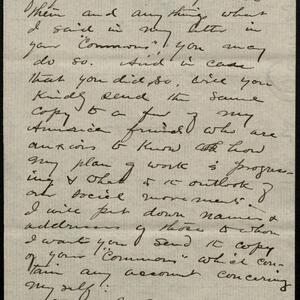 them and any things what
I said in my letter in
your "Commons," you may
do so. And in case
that you did so, will you
kindly send the same
copy to a few of my
America friends who are
anxious to know how
my plan of work is progres-
ing & what is outlook of
our social movement.
I will put down names &
addresses of those to whom
I want you send it copy
of your "Commons" which con-
tain any account concering
my self: